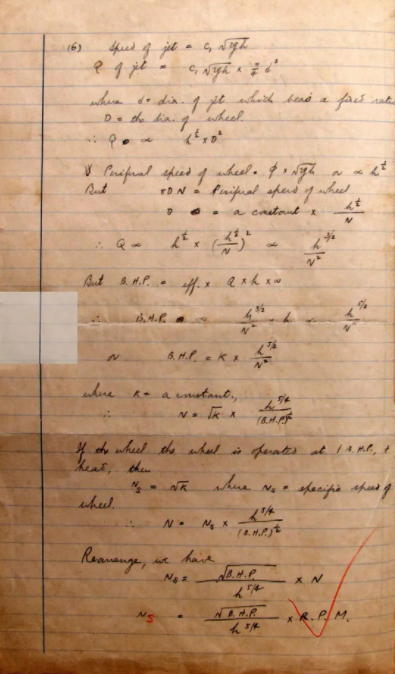 (6) Speed of jet = C₁ √2gh
Q of jet = C₁ √2gh × π/4 d²
where d = dia. of jet which bears a fixed ratio
D = the dia. of wheel.
∴ Q ∝ h^½ × D²
V Periferal speed of wheel = φ × √2gh or ∝ h^½
But πDN = Periferal speed of wheel
D = a constant × h^½/N
∴ Q ∝ h^½ × (h^½/N)² ∝ h^3/2/N²
But B.H.P. = eff. × Q × h × ω
∴ B.H.P. ∝ h^3/2/N² × h ∝ h^5/2/N²
or B.H.P. = K × h^5/2/N²
where K = a constant,
∴ N = √K × h^5/4/(B.H.P.)^½
If the wheel the wheel is operated at 1 B.H.P., +
head, then
Ns = √K where Ns = specific speed of
wheel.
∴ N = Ns × h^5/4/(B.H.P.)^½
Rearrange, we have
Ns = √B.H.P./h^5/4 × N
Ns = √B.H.P./h^5/4 × R.P.M.